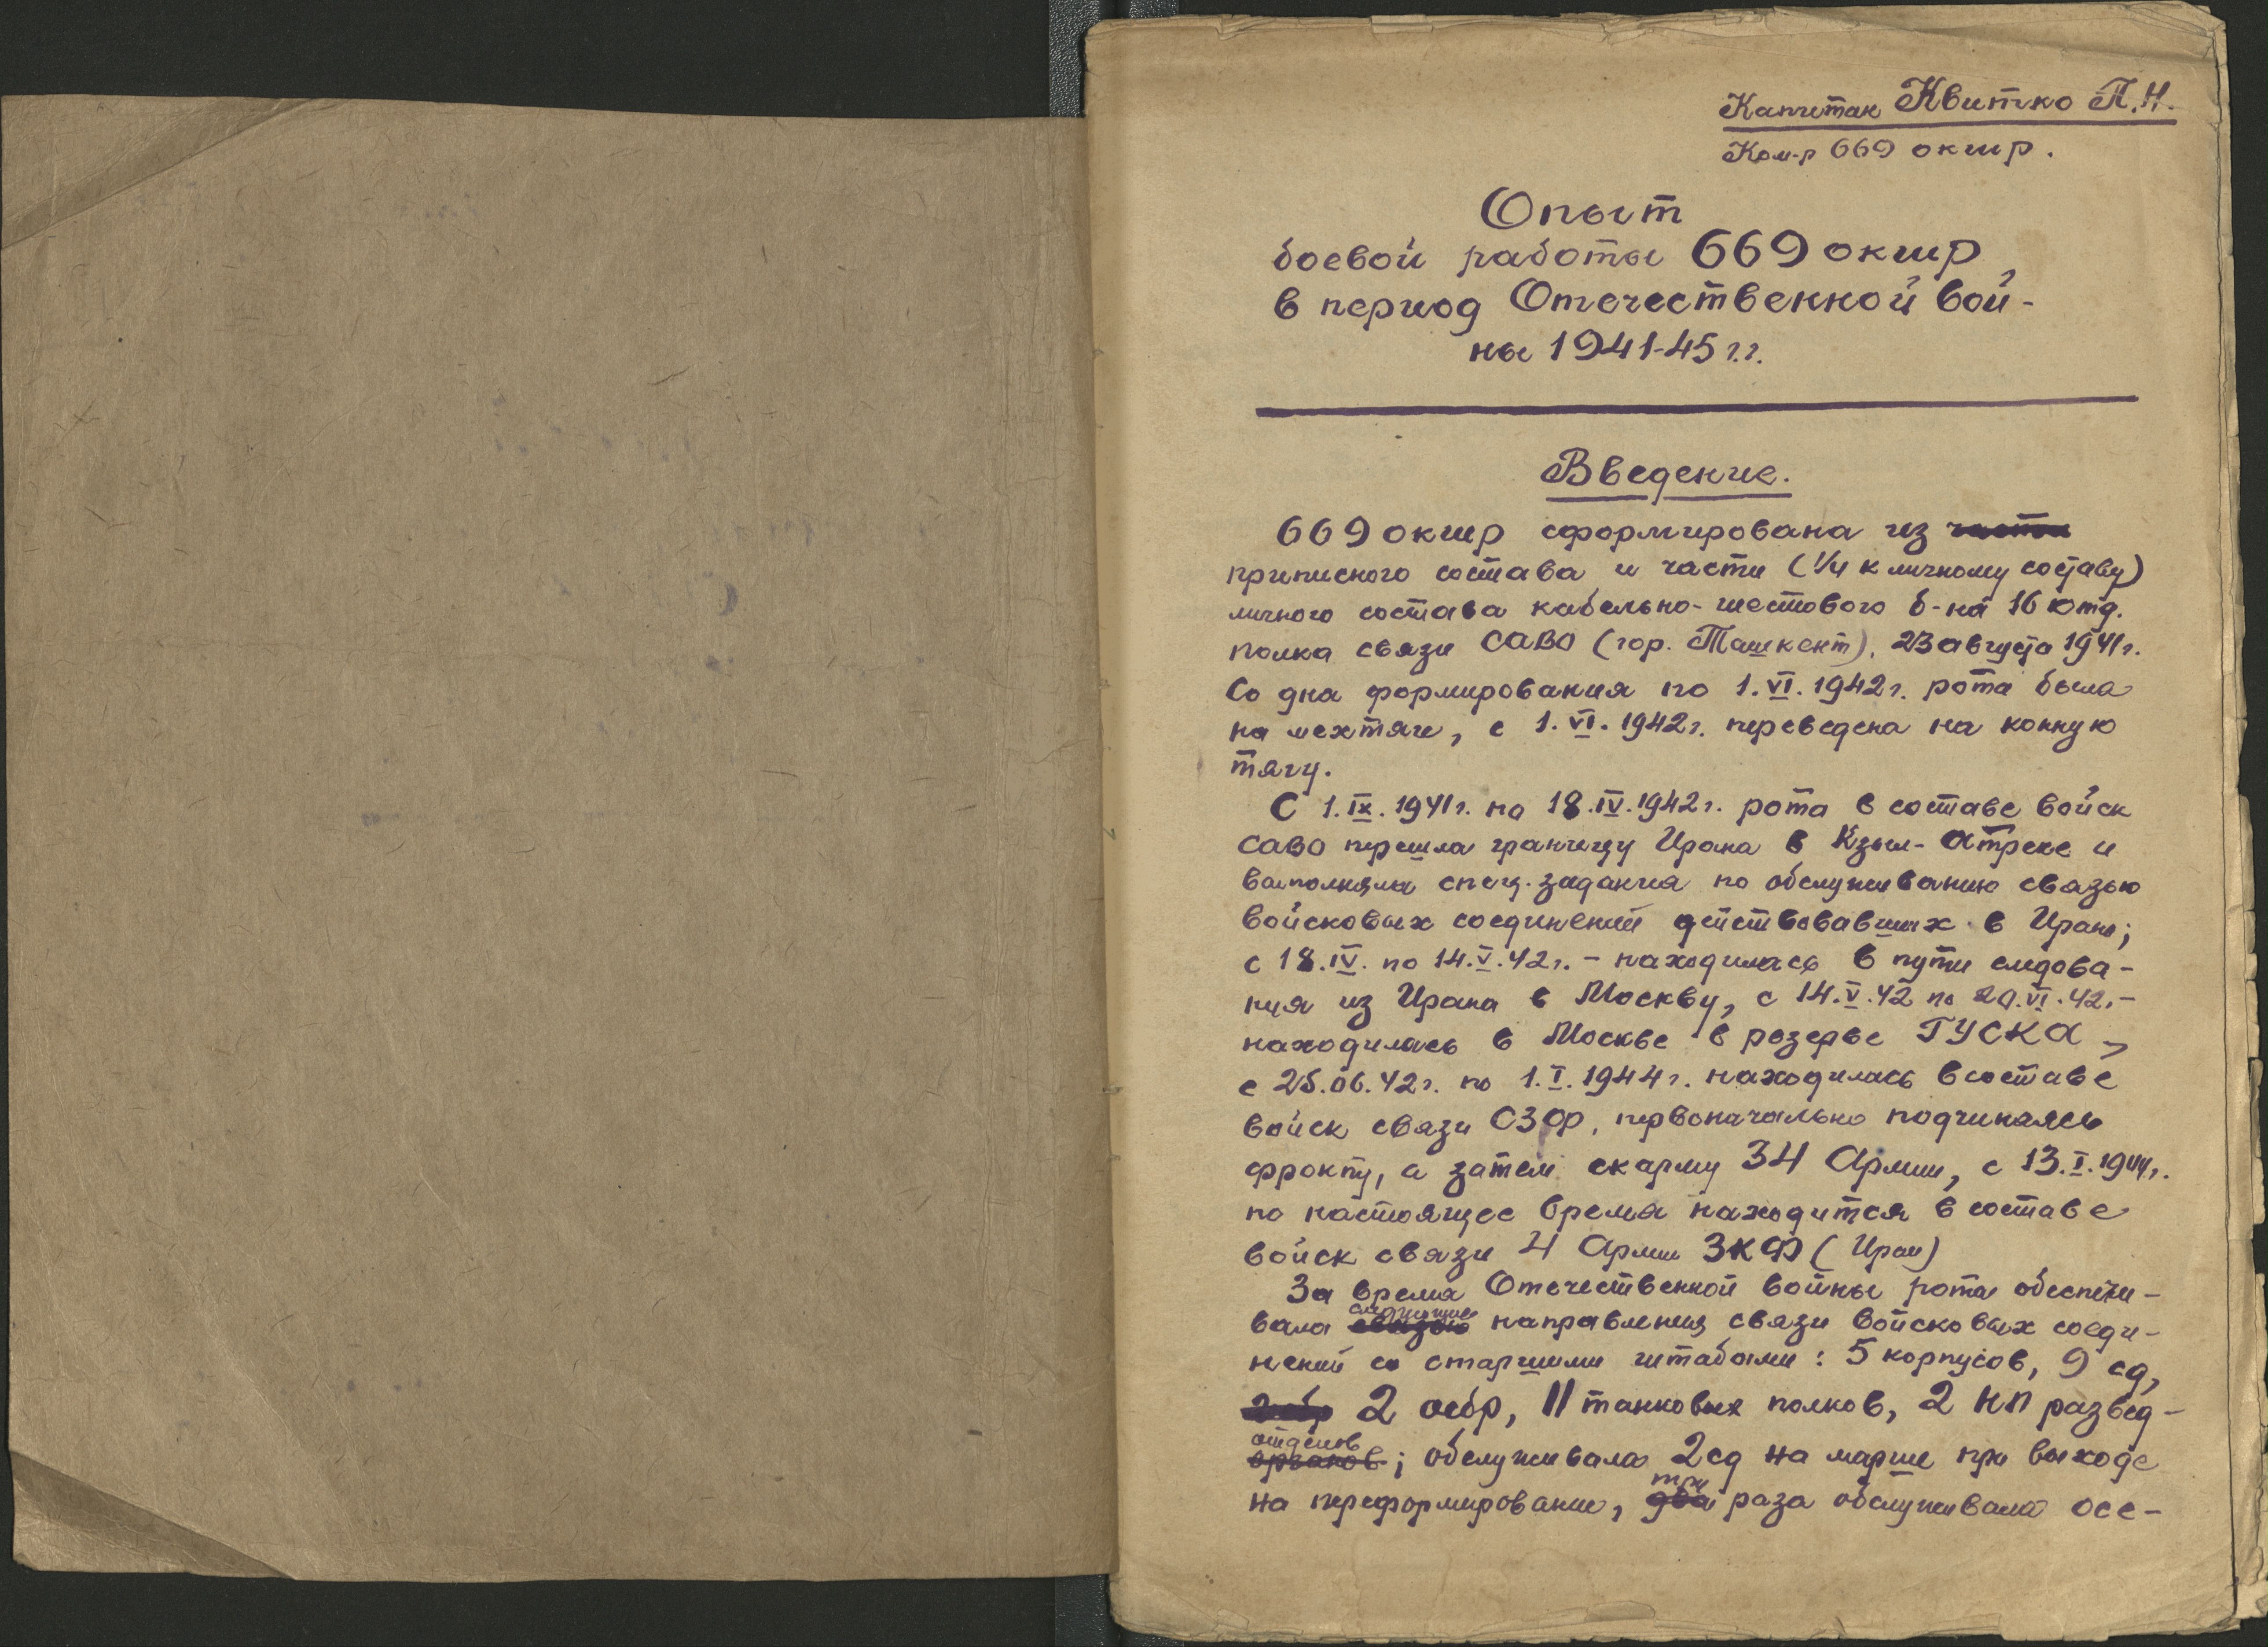 Капитан Квитко П.Н.
Ком-р 669 окшр.
Опыт
боевой работы 669 окшр
в период Отечественной вой-
ны 1941-45 г.г.
Введение.
669 окшр сформирована из части
приписного состава и части (1/4 к личному составу)
личного состава кабельно-шестового б-на 16 отд.
полка связи САВО (гор. Ташкент), 23 августа 1941г.
Со дна формирования по 1.VI.1942г. рота была
на мехтяге, с 1.VI.1942г. переведена на конную
тягу.
С 1.IX.1941г. по 18.IV.1942г. рота в составе войск
САВО перешла границу Ирана в Кзыл-Атреке и
выполняла спец. задания по обслуживанию связью
войсковых соединений действовавших в Иране;
с 18.IV. по 14.V.42г. - находилась в пути следова-
ния из Ирана в Москву, с 14.V.42 по 20.VI.42. -
находилась в Москве в резерве ГУСКА,
с 25.06.42г. по 1.I.1944г. находилась в составе
войск связи СЗФ, первоначально подчиняясь
фронту, а затем скарму 34 Армии, с 13.I.1944г.
по настоящее время находится в составе
войск связи 4 Армии ЗКФ (Иран)
За время Отечественной войны рота обеспечи-
вала связью направления связи войсковых соеди-
нений со старшими штабами: 5 корпусов, 9 сд,
2 осбр, 11 танковых полков, 2 НП развед-
отделов
органов; обслуживала 2 сд на марше при выходе
три
на переформирование, два раза обслуживала осе-